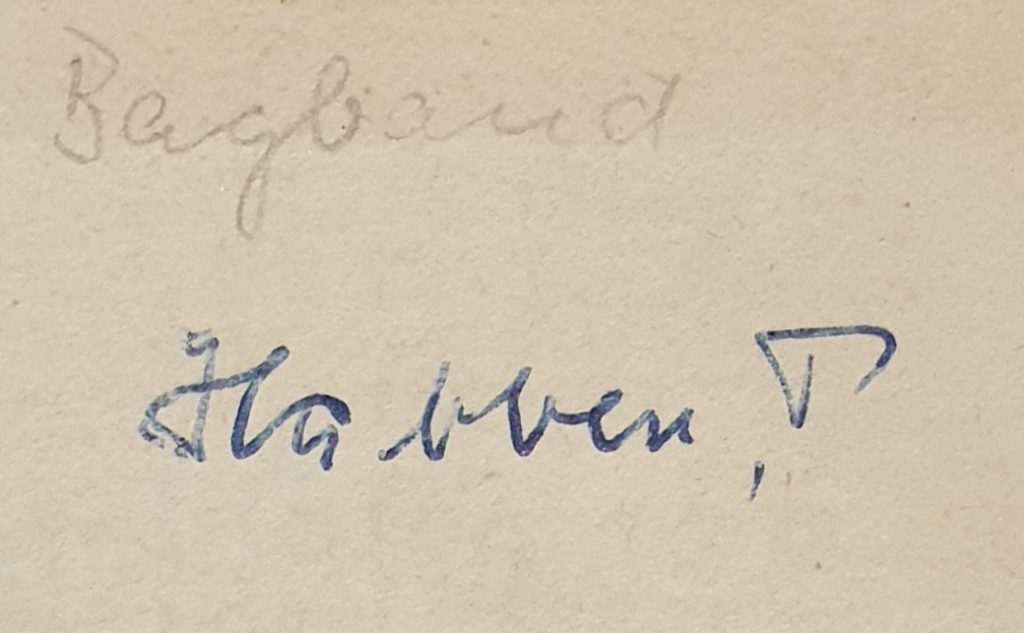 Bagband
Habben, T